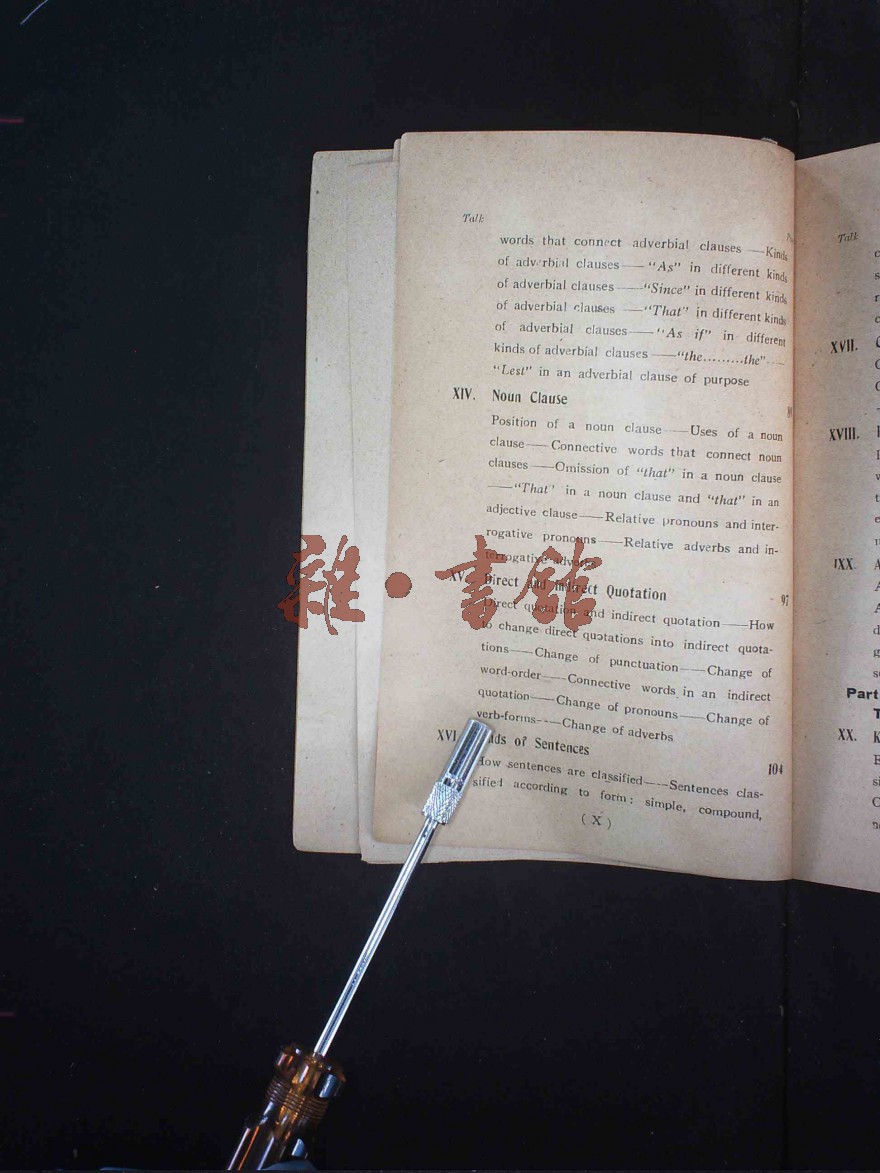 Talk
words that connect adverbial clauses —Kinds
of adverbial clauses— "As" in different kinds
of adverbial clauses —"Since" in different kinds
of adverbial clauses —"That" in different kinds
of adverbial clauses— "As if" in different
kinds of adverbial clauses —"the.........the"—
"Lest" in an adverbial clause of purpose
XIV. Noun Clause
Position of a noun clause —Uses of a noun
clause— Connective words that connect noun
clauses —Omission of "that" in a noun clause
—"That" in a noun clause and "that" in an
adjective clause—Relative pronouns and inter-
rogative pronouns—Relative adverbs and in-
terrogative adverbs
XV. Direct and Indirect Quotation 97
Direct quotation and indirect quotation—How
to change direct quotations into indirect quota-
tions—Change of punctuation—Change of
word-order—Connective words in an indirect
quotation—Change of pronouns—Change of
verb-forms—Change of adverbs
XVI. of Sentences 104
How sentences are classified—Sentences clas-
sified according to form: simple, compound,
( X )
雜·書館
Talk
XVII.
XVIII.
XX.
Part